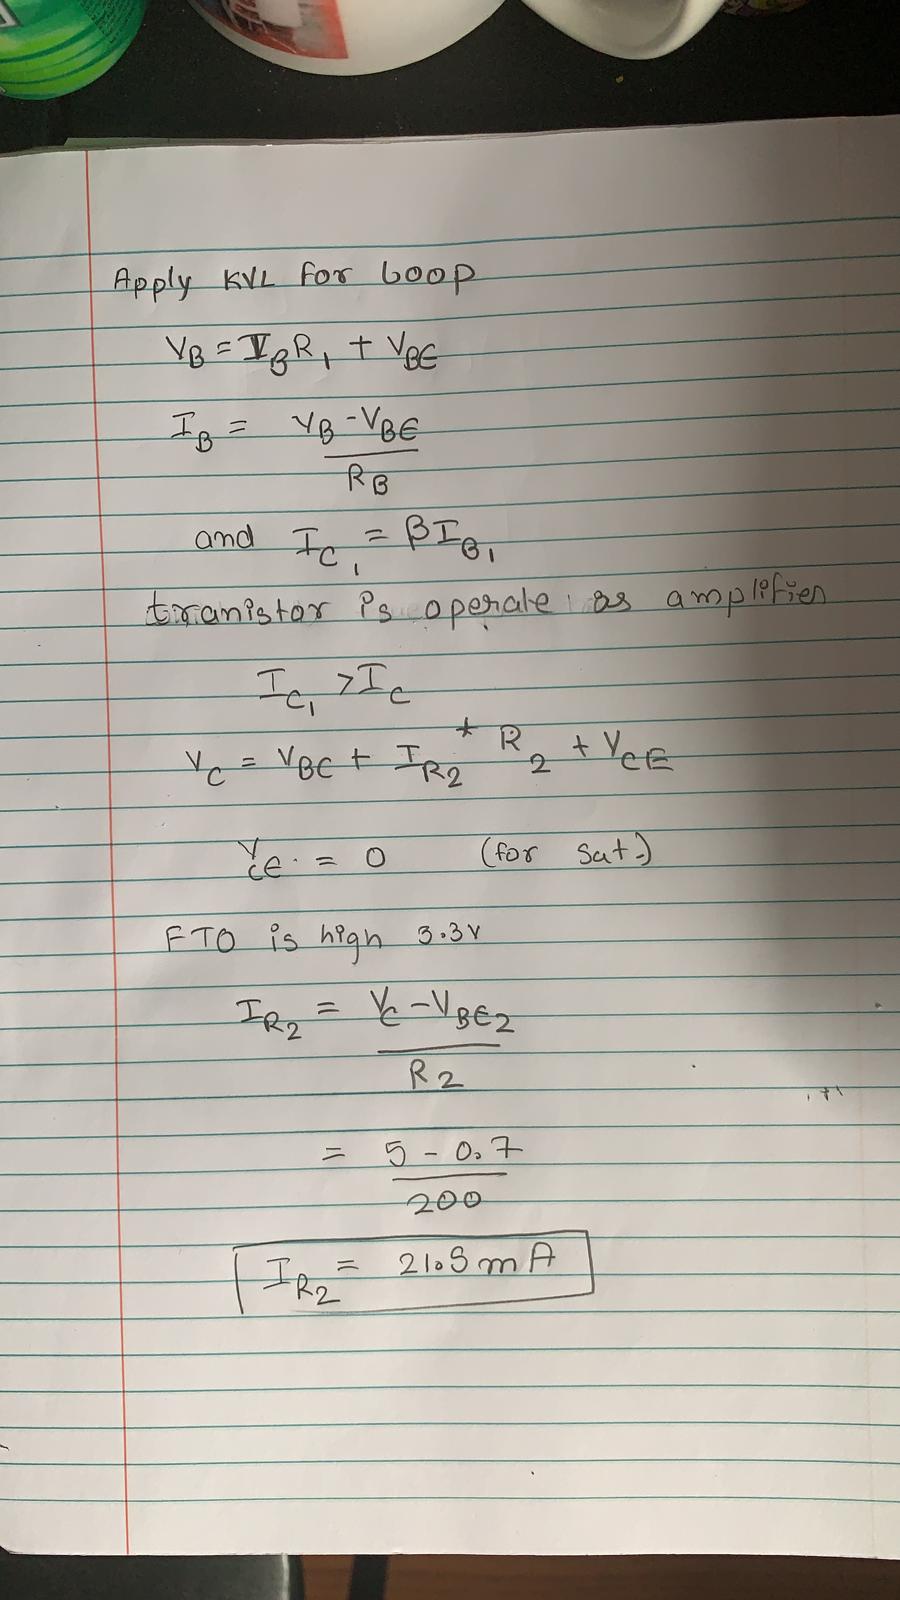 Apply KVL for loop
V_B = I_B R_1 + V_BE
I_B = V_B - V_BE
R_B
and I_C1 = βI_B1
tranistor is operate as amplifier
I_C1 > I_C
V_C = V_BE + I_R2 * R_2 + V_CE
V_CE = 0 (for sat.)
FTO is high 3.3V
I_R2 = V_C - V_BE2
R2
= 5 - 0.7
200
I_R2 = 21.5 mA